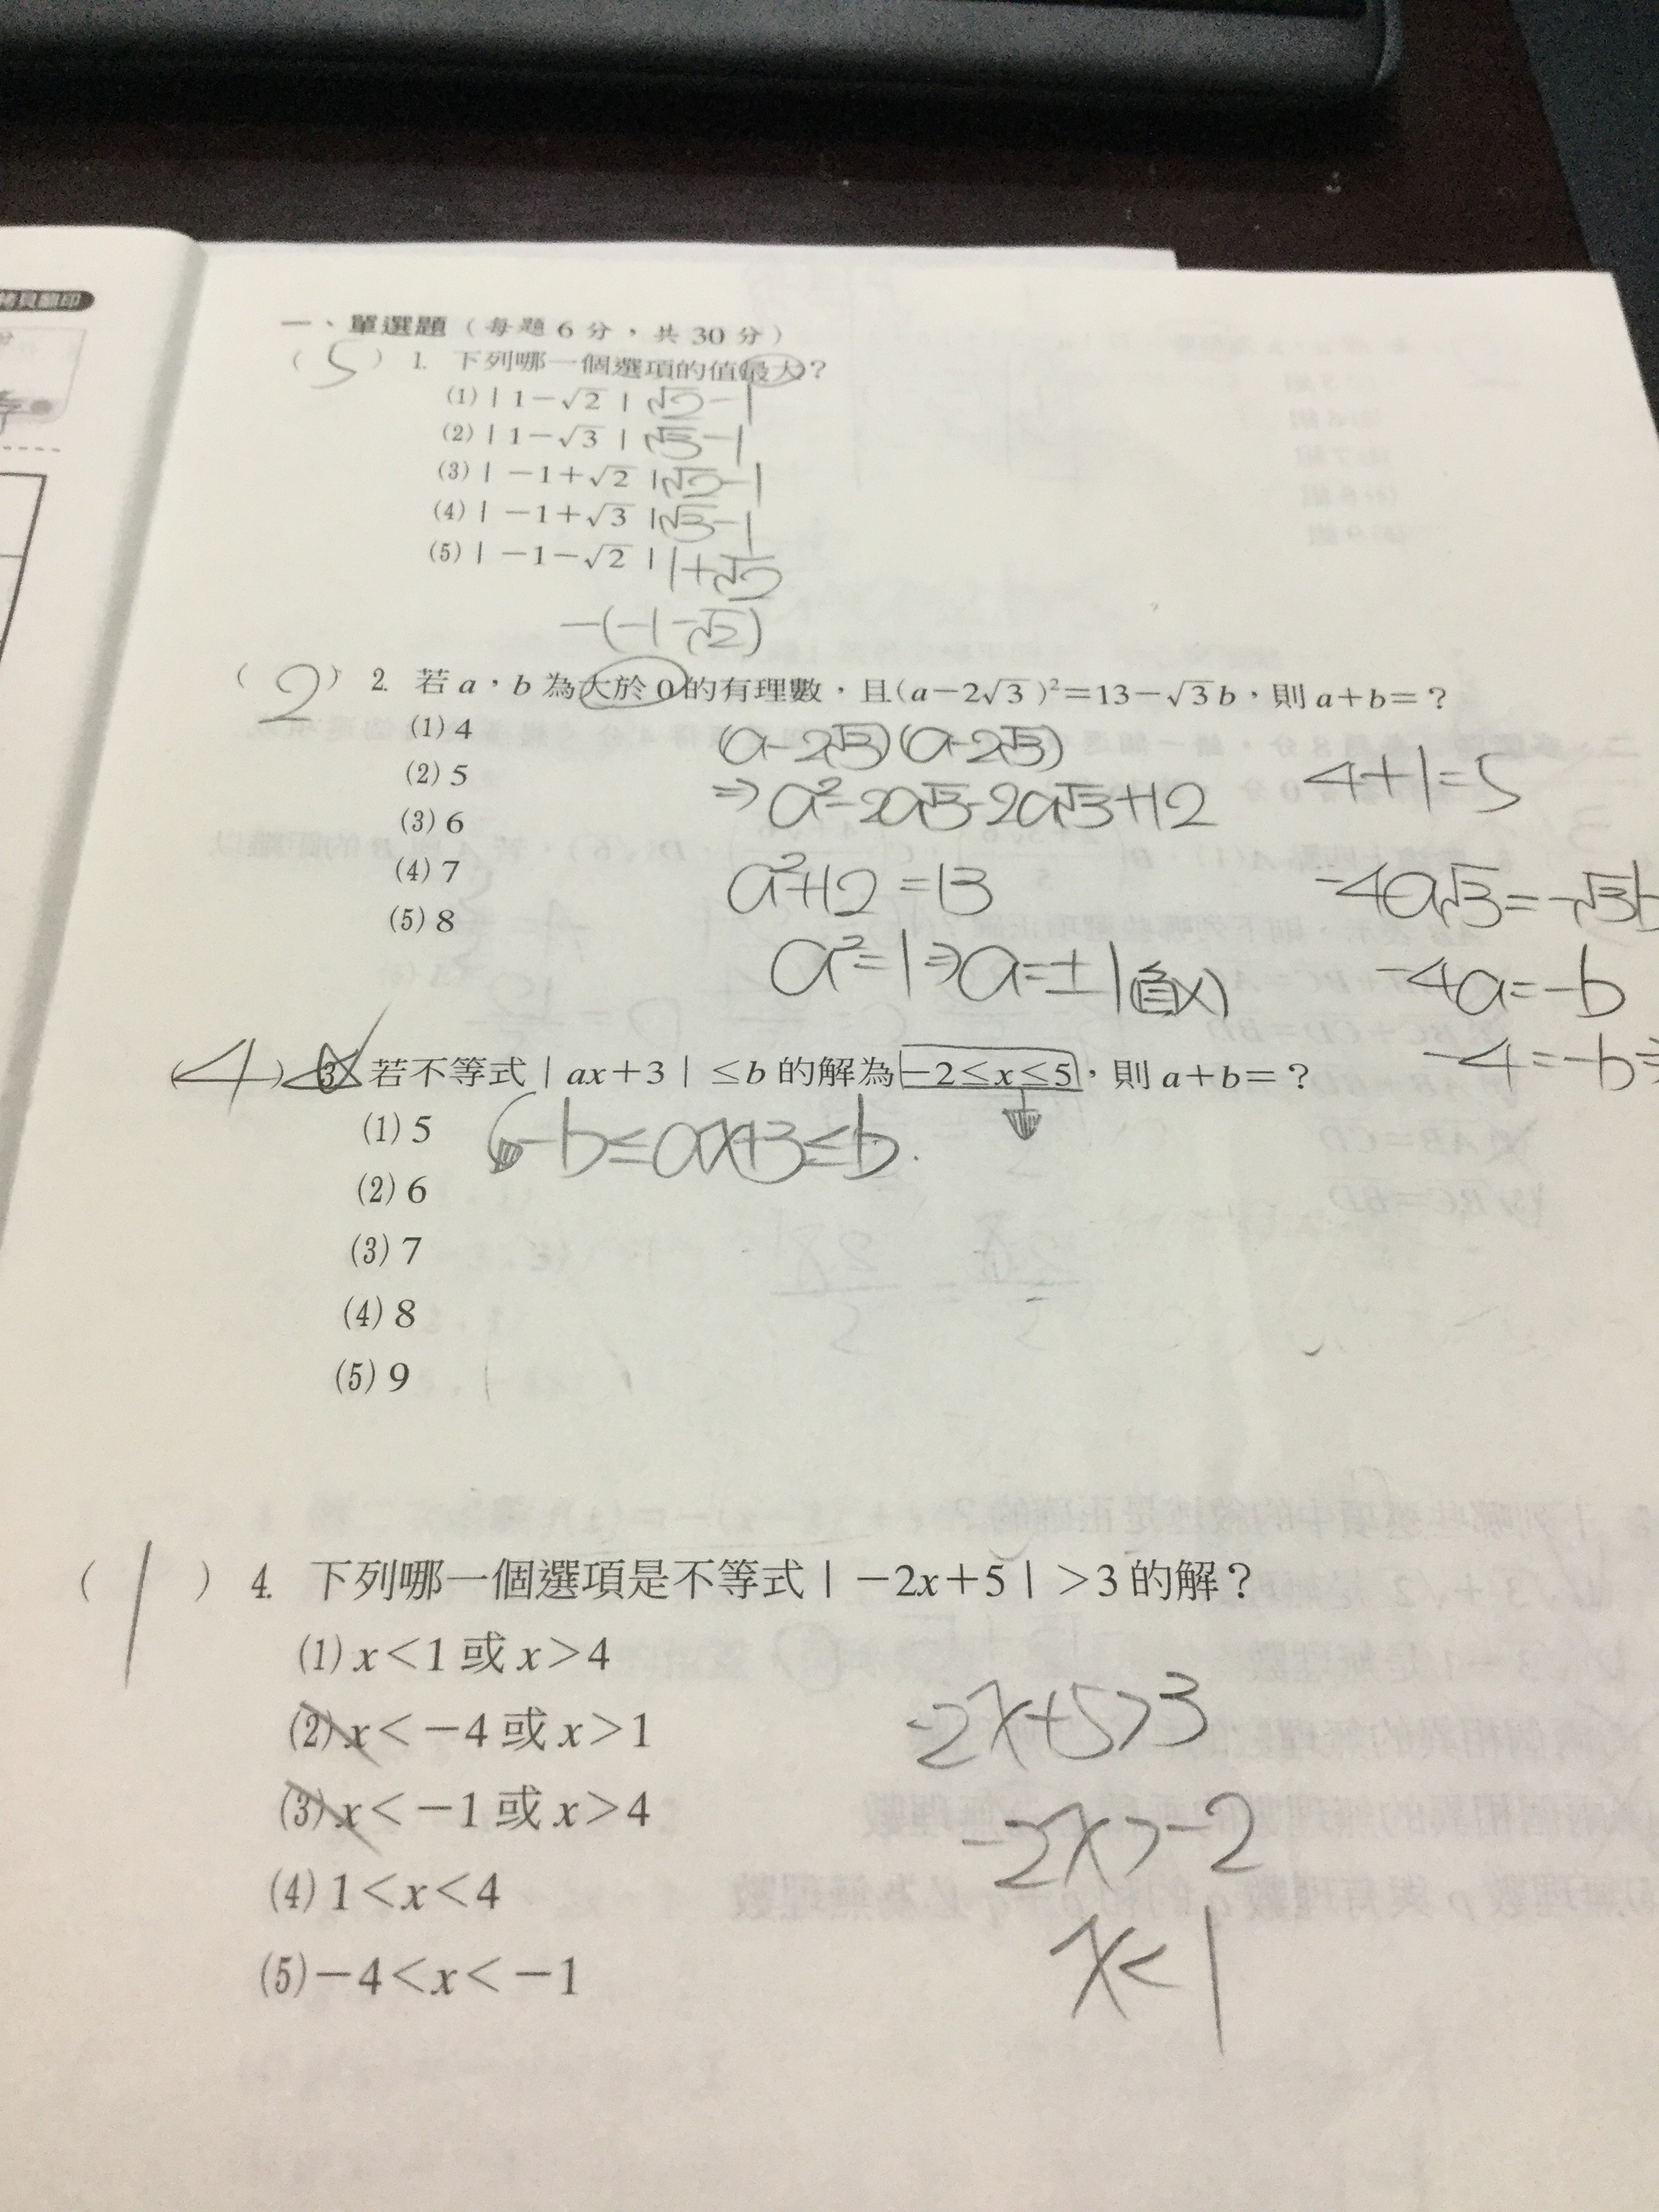 拷貝翻印
一、單選題（每題 6 分，共 30 分）
( 5 ) 1. 下列哪一個選項的值最大？
(1)｜1－√2｜ √2－1
(2)｜1－√3｜ √3－1
(3)｜－1＋√2｜ √2－1
(4)｜－1＋√3｜ √3－1
(5)｜－1－√2｜ 1＋√2
－(－1－√2)
( 2 ) 2. 若 a，b 為大於 0 的有理數，且(a－2√3)²＝13－√3b，則 a＋b＝？
(1) 4
(2) 5
(3) 6
(4) 7
(5) 8
(a-2√3)(a-2√3)
⇒a²-2a√3-2a√3+12
a²+12=13
a²=1⇒a=±1(負x)
4+1=5
-4a√3=-√3b
-4a=-b
-4=-b⇒
( 4 ) 3. 若不等式｜ax＋3｜≤b 的解為－2≤x≤5，則 a＋b＝？
-b≤ax+3≤b
(1) 5
(2) 6
(3) 7
(4) 8
(5) 9
( 1 ) 4. 下列哪一個選項是不等式｜－2x＋5｜＞3 的解？
(1) x＜1 或 x＞4
(2) x＜－4 或 x＞1
(3) x＜－1 或 x＞4
(4) 1＜x＜4
(5)－4＜x＜－1
-2x+5>3
-2x>-2
x<1